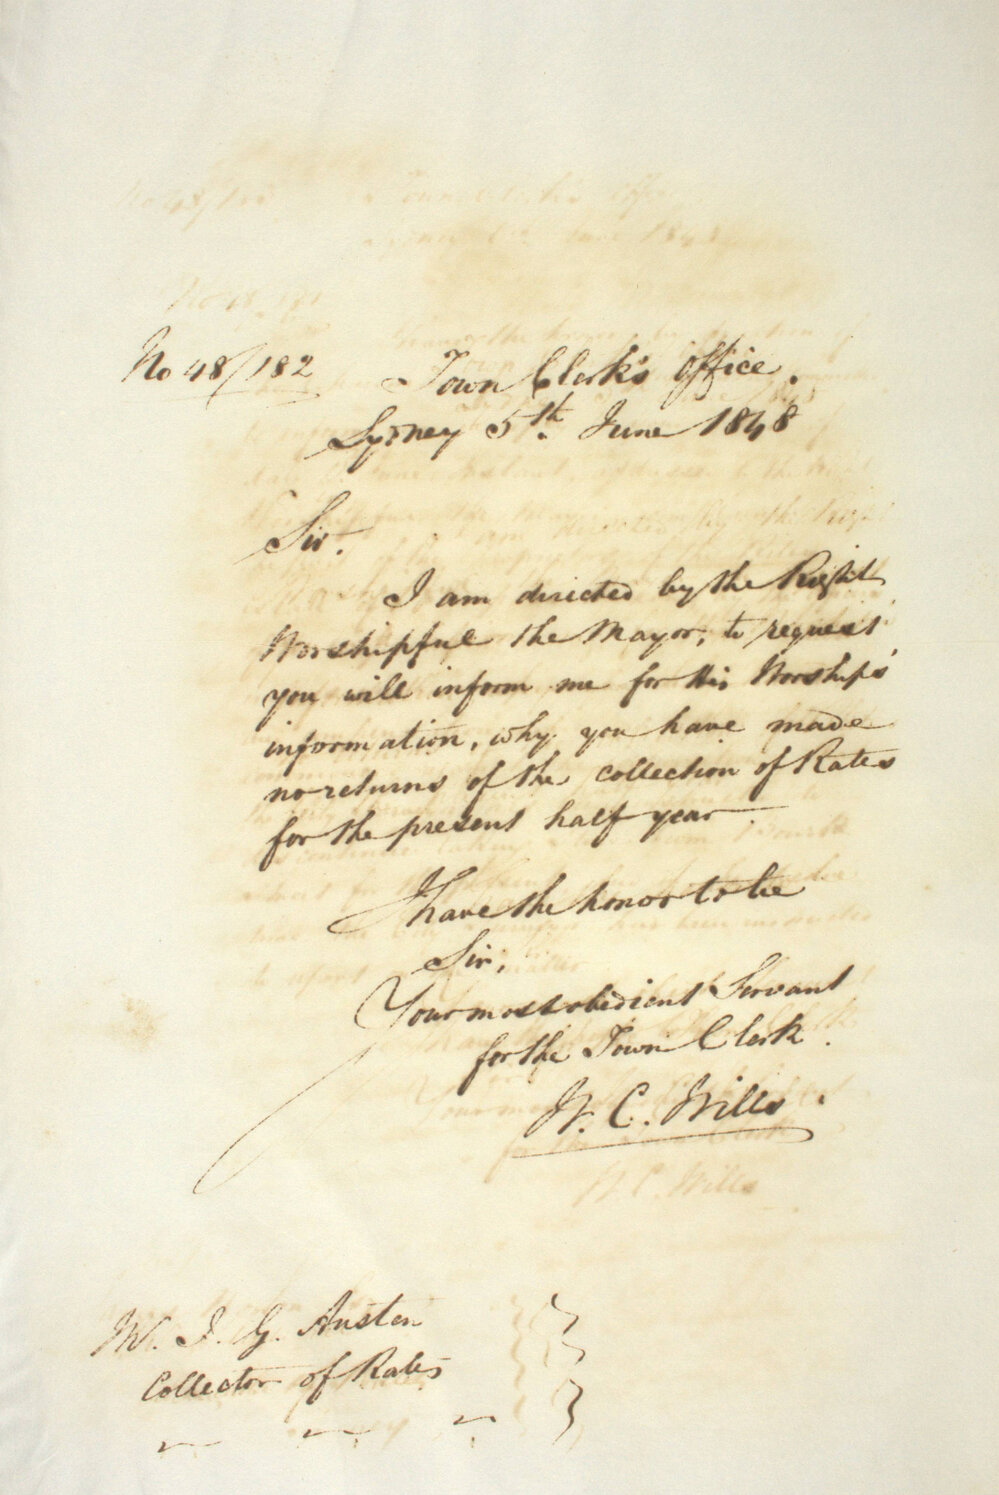 No 48/182
Town Clerk's Office.
Sydney 5th. June 1848
Sir.
I am directed by the Right
Worshipful the Mayor, to request
you will inform me for His Worship's
information, why you have made
no returns of the collection of Rates
for the present half year.
I have the honor to be
Sir,
Your most obedient Servant
for the Town Clerk.
W. C. Wills.
W. C. Wills
Mr. J. G. Austen
Collector of Rates